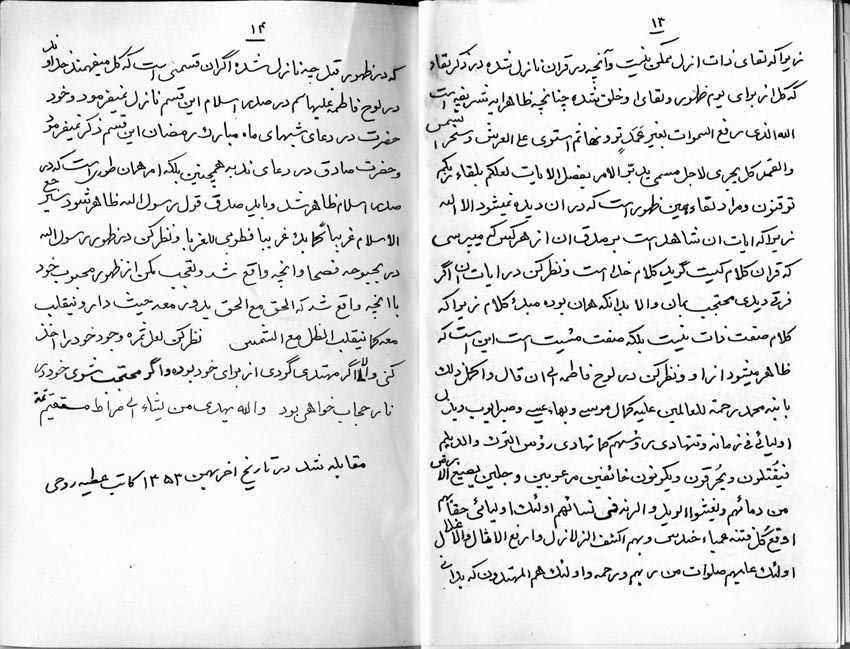 ۱۳
زیرا که لقای ذات ازل ممکن نیست و آنچه در قران نازل شده در ذکر لقاء
که کل از برای یوم ظهور و لقای او خلق شده چنانچه ظاهر ایه شریفه است
الله الذی رفع السموات بغیر عمد ترونها ثم استوی علی العرش و سخر الشمس
والقمر کل یجری لاجل مسمی یدبر الامر یفصل الایات لعلکم بلقاء ربکم
توقنون و مراد لقاء همین ظهور است که در ان دیده نمیشود الا الله
زیرا که ایات ان شاهد است بر صدق ان از هر کس که میپرسی
که قران کلام کیست گوید کلام خدا است و نظر کن در ایات ان اگر
فرق دیدی محتجب بمان و الا بدانکه همان بوده مبدء کلام زیرا که
کلام صفت ذات نیست بلکه صفت مشیت است این است که
ظاهر میشود از او و نظر کن در لوح فاطمه الی ان قال و اکمل ذلک
بابنه محمد رحمة للعالمین علیه کمال موسی و بهاء عیسی و صبر ایوب و یذل
اولیائی فی زمانه و تتهادی رؤسهم کما تهادی رؤس الترک والدیلم
فیقتلون و یحرقون و یکونون خائفین مرعوبین وجلین یصبغ الارض
من دمائهم و یفشوا الویل و الرنه فی نسائهم اولئک اولیائی حقا بهم
ادفع کل فتنه عمیاء حندس و بهم اکشف الزلازل و ارفع الاصال والاغلال
اولئک علیهم صلوات من ربهم و رحمه و اولئک هم المهتدون که بدانی
۱۴
که در ظهور قبل چه نازل شده اگر ان قسمی است که کل میفهمند خداوند
در لوح فاطمه علیها سلم در صدر اسلام این قسم نازل نمیفرمود و خود
حضرت در دعای شبهای ماه مبارک رمضان این قسم ذکر نمیفرمود
و حضرت صادق در دعای ندبه همچنین بلکه امر همان طوری است که در
صدر اسلام ظاهر شد و باید صدق قول رسول الله ظاهر شود سیرجع
الاسلام غریبا کما بدء غریبا فطوبی للغربا و نظر کن در ظهور رسول الله
در بحبوحه فصحا و انچه واقع شد و تعجب مکن از ظهور محبوب خود
با انچه واقع شد که الحق مع الحق یدور معه حیث دار و ینقلب
معه کما ینقلب الظل مع الشمس نظر کن لعل ثمره وجود خود را اخذ
کنی و الا اگر مهتدی گردی از برای خود بوده و اگر محتجب شوی خود در
نار حجاب خواهی بود والله یهدی من یشاء الی صراط مستقیم تمة
مقابله شد در تاریخ اخر بهمن ۱۳۵۳ کاتب عطیه روحی